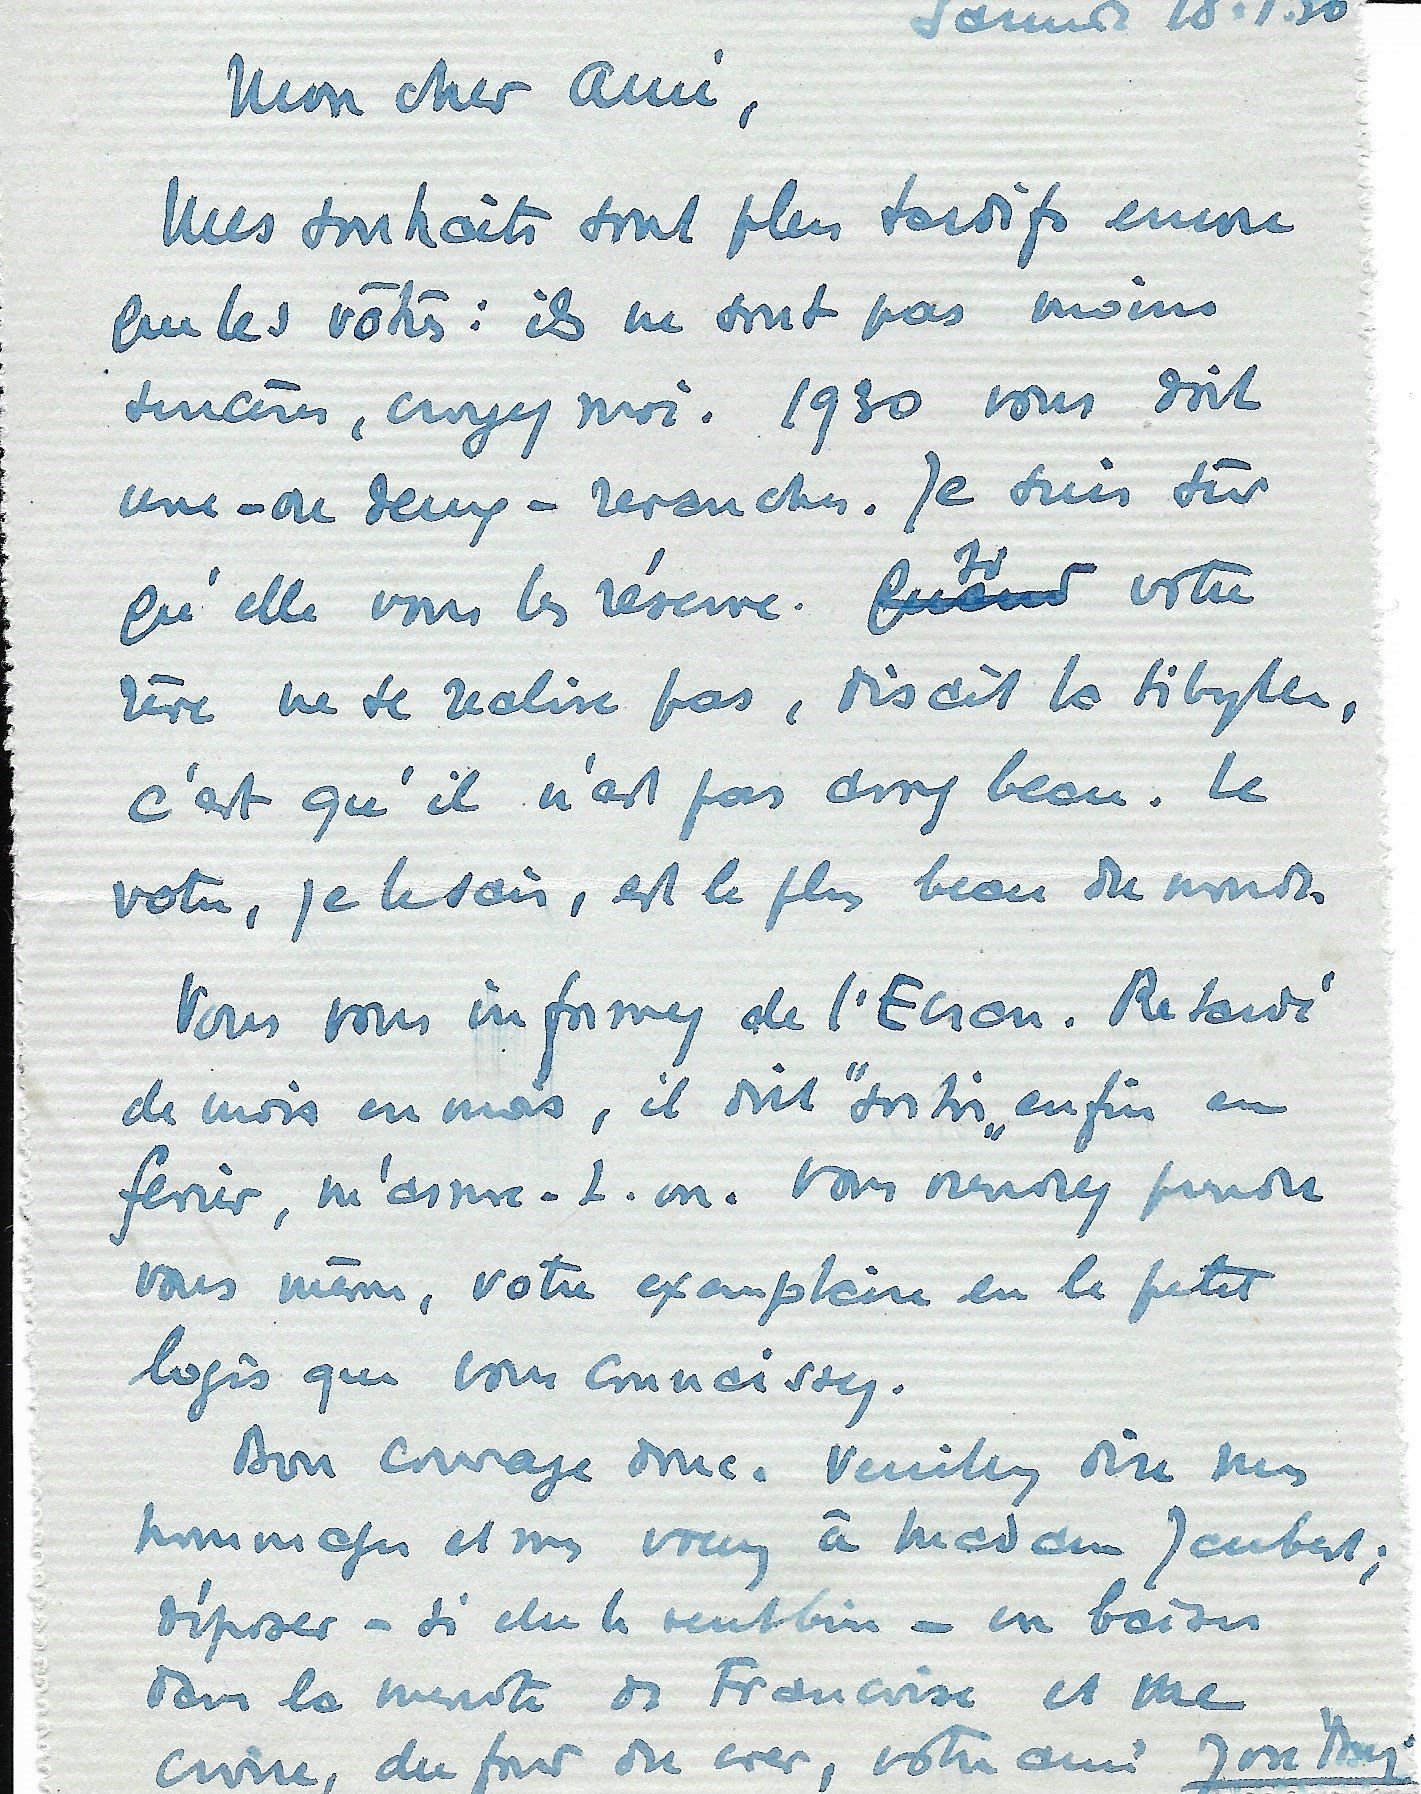 Samedi 18.1.30
Mon cher Ami,
Mes souhaits sont plus tardifs encore
que les vôtres : ils ne sont pas moins
sincères, croyez moi. 1930 vous doit
une - ou deux - revanches. Je suis sûr
qu'elle vous les réserve. Quand Si votre
rêve ne se realise pas, disait la sibylle,
c'est qu'il n'est pas assez beau. Le
votre, je le sais, est le plus beau du monde
Vous vous informez de l'Ecran. Retardé
de mois en mois, il doit "sortir" enfin en
fevrier, m'assure-t-on. Vous viendrez prendre
vous même, votre exemplaire en le petit
logis que vous connaissez.
Bon courage donc. Veuillez dire mes
hommages et mes voeux à Madame Jaubert ;
déposer - si elle le veut bien - un baiser
dans la menote de Françoise et me
croire, du fond du coeur, votre ami